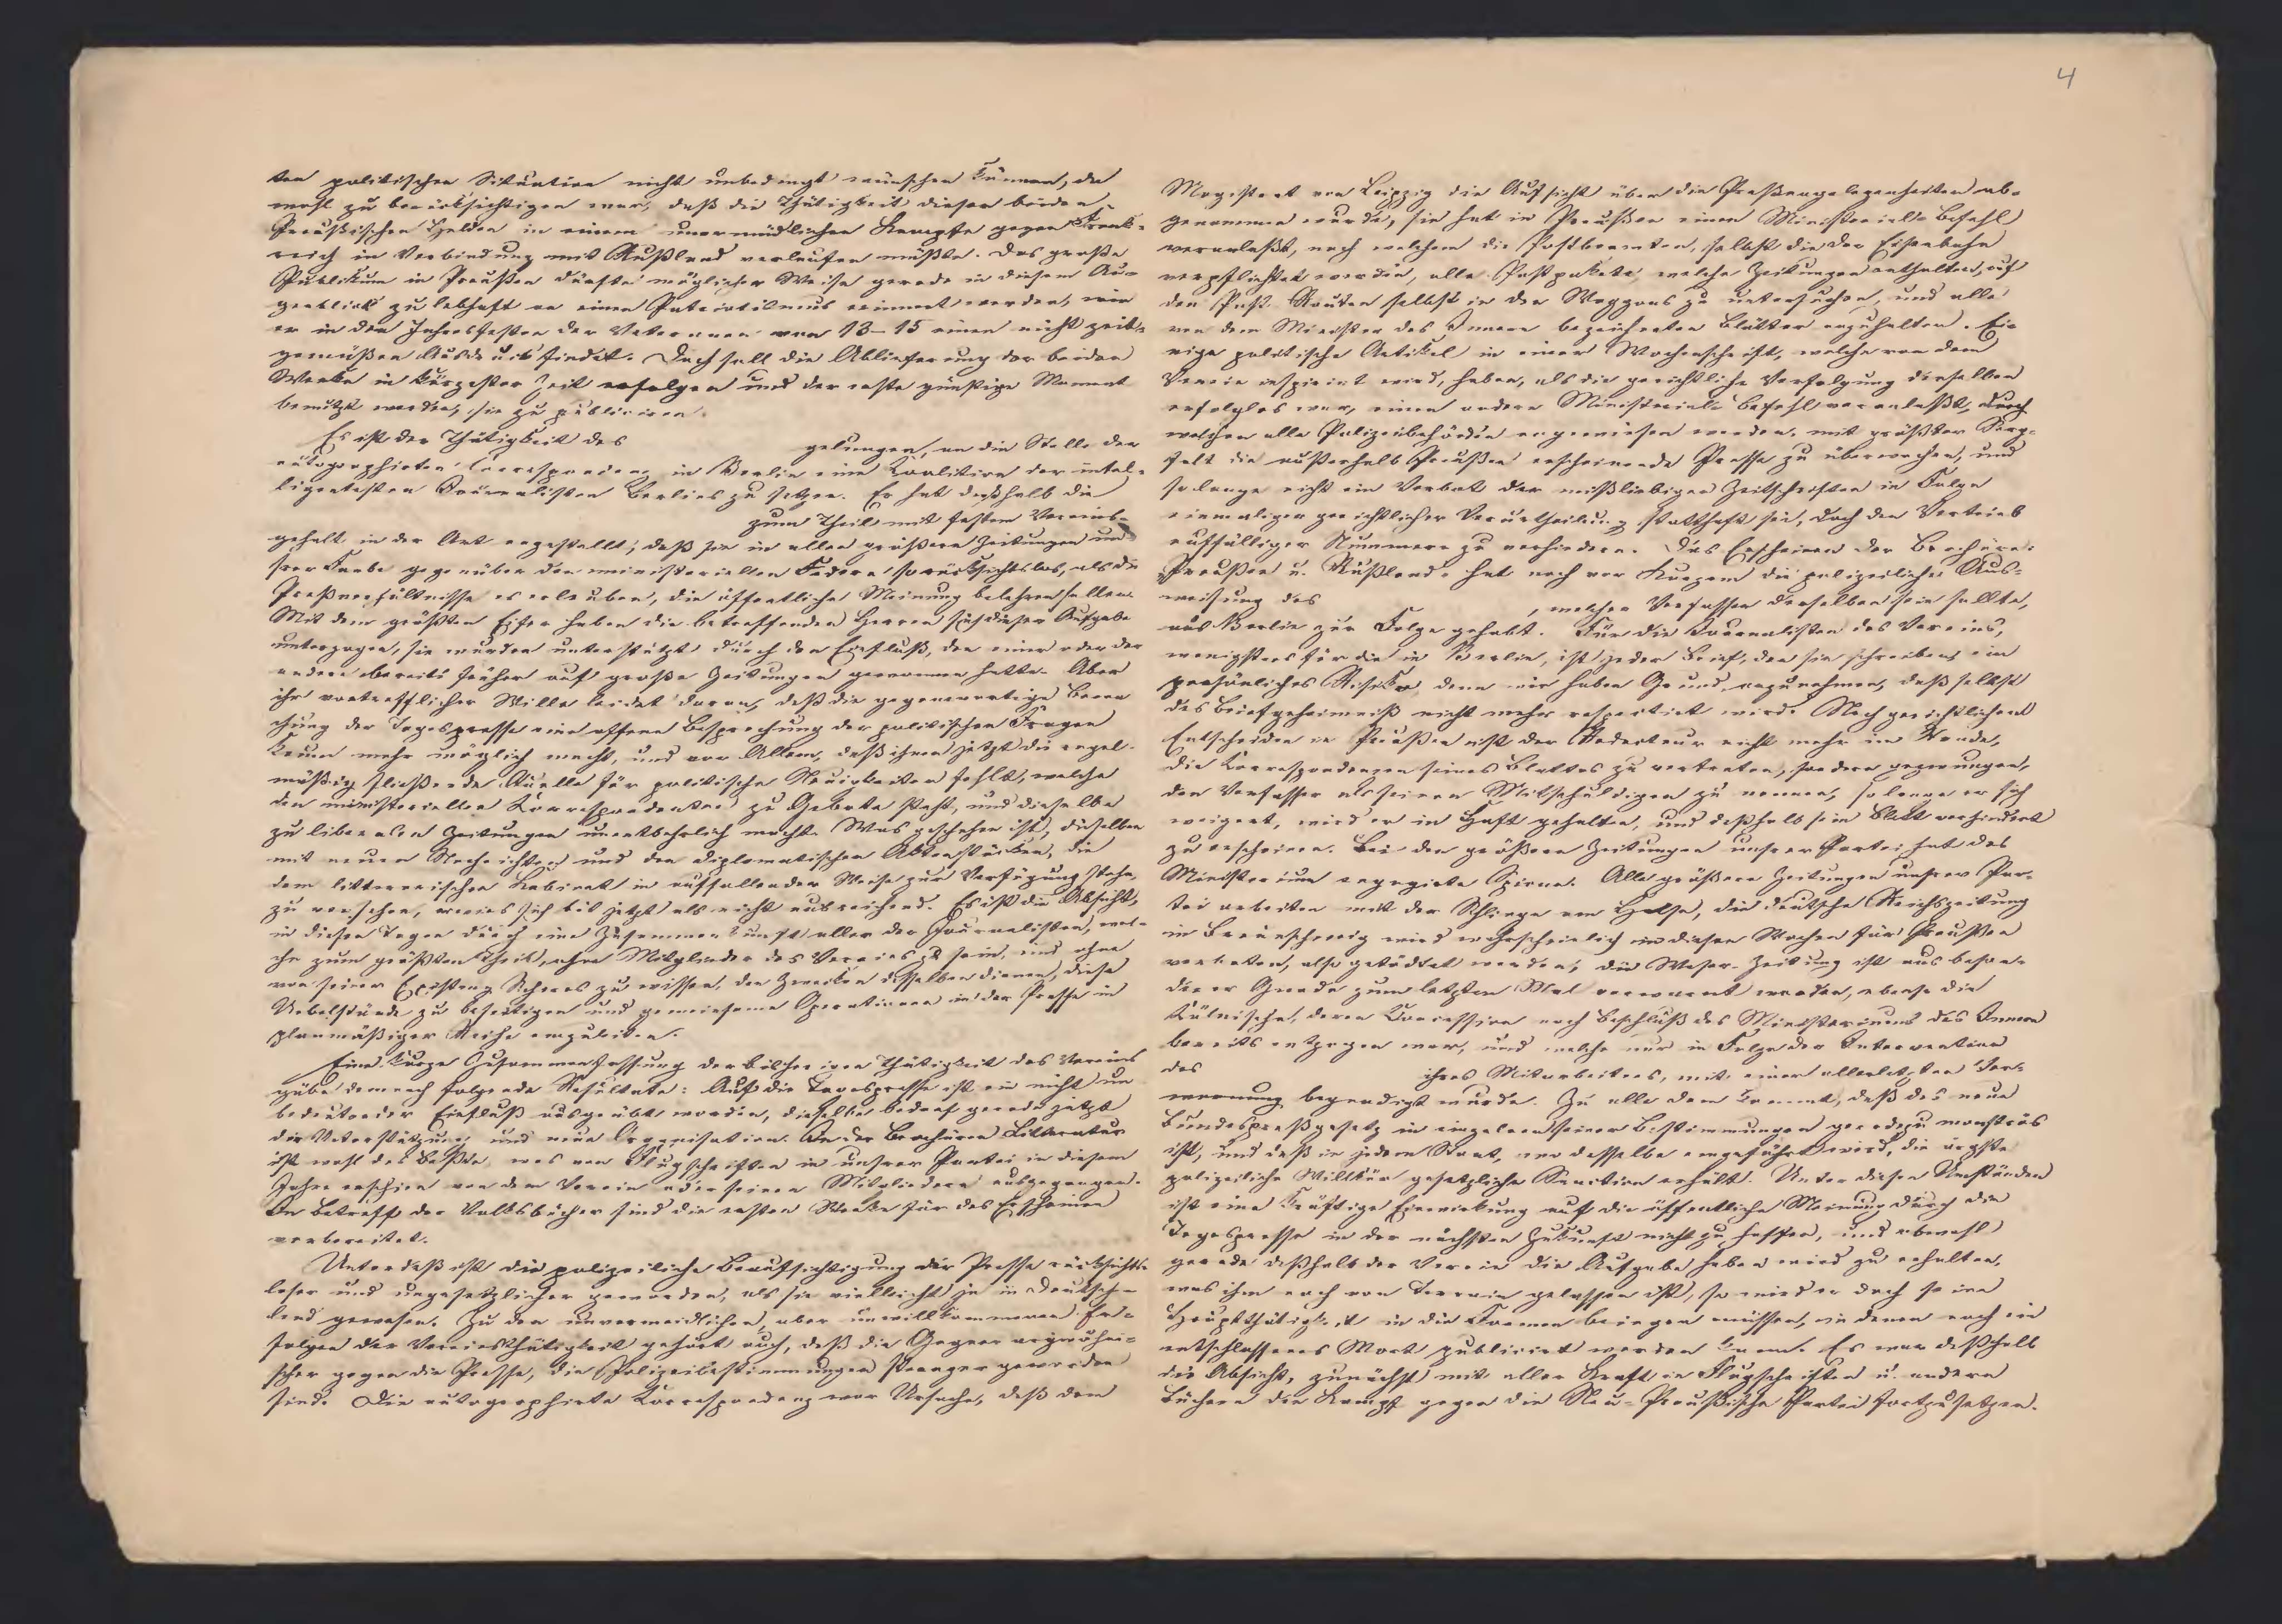 4
ten politischen Situation nicht unbedingt wünschen können, da
wohl zu berücksichtigen war, daß die Thätigkeit dieser beiden
Preußischen Helden in einem unermüdlichen Kampfe gegen Frank-
reich in Verbindung mit Rußland verlaufen mußte. Das große
Publikum in Preußen dürfte möglicher Weise gerade in diesem Au-
genblick zu lebhaft an einen Patriotismus erinnert werden, wie
er in den Jahresfesten der Veteranen von 13–15 einen nicht zeit-
gemäßen Ausdruck findet. Doch soll die Ablieferung der beiden
Werke in kürzester Zeit erfolgen und der erste günstige Moment
benutzt werden, sie zu publiciren.
Es ist der Thätigkeit des gelungen, an die Stelle der
autographirten Correspondenz in Berlin eine Coalition der intel-
ligentesten Journalisten Berlins zu setzen. Er hat deßhalb die
zum Theil mit festem Vereins-
gehalt in der Art angestellt, daß sie in allen größern Zeitungen un-
srer Farbe gegenüber den ministeriellen Federn so rücksichtslos, als die
Preßverhältnisse es erlauben, die öffentliche Meinung belehren sollen.
Mit dem größten Eifer haben die betreffenden Herren sich dieser Aufgabe
unterzogen, sie wurden unterstützt durch den Einfluß, den einer oder der
andere bereits früher auf große Zeitungen gewonnen hatte. Aber
ihr vortrefflicher Wille leidet daran, daß die gegenwärtige Bewa-
chung der Tagespresse eine offene Besprechung der politischen Fragen
kaum mehr möglich macht, und vor Allem, daß ihnen jetzt die regel-
mäßig fließende Quelle für politische Neuigkeiten fehlt, welche
den ministeriellen Korrespondenten zu Gebote steht, und dieselben
zu liberalen Zeitungen unentbehrlich macht. Was geschehen ist, dieselben
mit neuen Nachrichten und den diplomatischen Aktenstücken, die
dem litterarischen Kabinet in auffallender Weise zur Verfügung stehn,
zu versehen, erwies sich bis jetzt als nicht ausreichend. Es ist die Absicht,
in diesen Tagen durch eine Zusammenkunft aller der Journalisten, wel-
che zum größten Theil, ohne Mitglieder des Vereines zu sein, und ohne
von seiner Existenz Sicheres zu wissen, den Zwecken desselben dienen, diese
Uebelstände zu beseitigen und gemeinsame Operationen in der Presse in
planmäßiger Reihe einzuleiten.
Eine kurze Zusammenfassung der bisherigen Thätigkeit des Vereins
gäbe demnach folgende Resultate: Auf die Tagespresse ist ein nicht un-
bedeutender Einfluß ausgeübt worden, dieselbe bedarf gerade jetzt
der Unterstützung und neue Organisation. In der Brochüren Litteratur
ist wohl das Beste, was von Flugschriften in unsrer Partei in diesem
Jahre erschien von dem Verein oder seinen Mitgliedern ausgegangen.
In Betreff der Volksbücher sind die ersten Werke für das Erscheinen
vorbereitet.
Unterdeß ist die polizeiliche Beaufsichtigung der Presse rücksichts-
loser und ungesetzlicher geworden, als sie vielleicht je in Deutsch-
land gewesen. Zu den unvermeidlichen, aber unwillkommenen Er-
folgen der Vereinsthätigkeit gehört auch, daß die Gegner argwöhni-
scher gegen die Presse, die Polizeibestimmungen strenger geworden
sind. Die autographirte Korrespondenz war Ursache, daß dem
Magistrat von Leipzig die Aufsicht über die Preßangelegenheiten ab-
genommen wurde, sie hat in Preußen einen Ministerialbefehl
veranlaßt, nach welchem die Postbeamten, selbst die der Eisenbahn
verpflichtet werden, alle Postpakete, welche Zeitungen enthalten, auf
den Post Routen selbst in den Waggons zu untersuchen, und alle
von dem Minister des Innern bezeichneten Blätter anzuhalten. Ei-
nige politische Artikel in einer Wochenschrift, welche von dem
Verein inspirirt wird, haben, als die gerichtliche Verfolgung derselben
erfolglos war, einen andern Ministerial-Befehl veranlaßt, durch
welchen alle Polizeibehörden angewiesen werden, mit größter Sorg-
falt die außerhalb Preußen erscheinende Presse zu überwachen, und
solange nicht ein Verbot der mißliebigen Zeitschriften in Folge
einmaliger gerichtlicher Verurtheilung statthaft sei, doch den Vertrieb
auffälliger Nummern zu verhindern. Das Erscheinen der Brochüre:
Preußen u. Rußland, hat noch vor Kurzem die polizeiliche Aus-
weisung des , welcher Verfasser derselben sein sollte,
aus Berlin zur Folge gehabt. Für die Journalisten des Vereins,
wenigstens für die in Berlin, ist jeder Brief, den sie schreiben, ein
persönliches Risiko, denn wir haben Grund, anzunehmen, daß selbst
das Briefgeheimniß nicht mehr respectirt wird. Nach gerichtlichem
Entscheiden in Preußen ist der Redacteur nicht mehr im Stande,
die Korrespondenzen seines Blattes zu vertreten, sondern gezwungen,
den Verfasser als seinen Mitschuldigen zu nennen, so lange er sich
weigert, wird er in Haft gehalten, und deßhalb sein Blatt verhindert
zu erscheinen. Bei den größern Zeitungen unsrer Partei hat das
Ministerium engagirte Spione. Alle größern Zeitungen unsrer Par-
tei arbeiten mit der Schlinge am Halse, die deutsche Reichszeitung
in Braunschweig wird wahrscheinlich in diesen Wochen für Preußen
verboten, also getödtet werden, die Weser-Zeitung ist aus beson-
derer Gnade zum letzten Mal verwarnt worden, ebenso die
Kölnische, deren Concession nach Beschluß des Ministeriums des Innern
bereits entzogen war, und welche nur in Folge der Intervention
des ihres Mitarbeiters, mit einer allerletzten Ver-
warnung begnadigt wurde. Zu alle dem kommt, daß das neue
Bundespreßgesetz in einzelnen seiner Bestimmungen geradezu monströs
ist, und daß in jedem Staat, wo dasselbe eingeführt wird, die ärgste
polizeiliche Willkür gesetzliche Sanction erhält. Unter diesen Umständen
ist eine kräftige Einwirkung auf die öffentliche Meinung durch die
Tagespresse in der nächsten Zukunft nicht zu hoffen, und obwohl
gerade deßhalb der Verein die Aufgabe haben wird zu erhalten,
was ihm noch von Terrain gelassen ist, so wird er doch seine
Hauptthätigkeit in die Formen bringen müssen, in denen noch ein
entschlossenes Wort publicirt werden kann. Es war deßhalb
die Absicht, zunächst mit aller Kraft in Flugschriften u. andern
Büchern den Kampf gegen die Neu-Preußische Partei fortzusetzen.